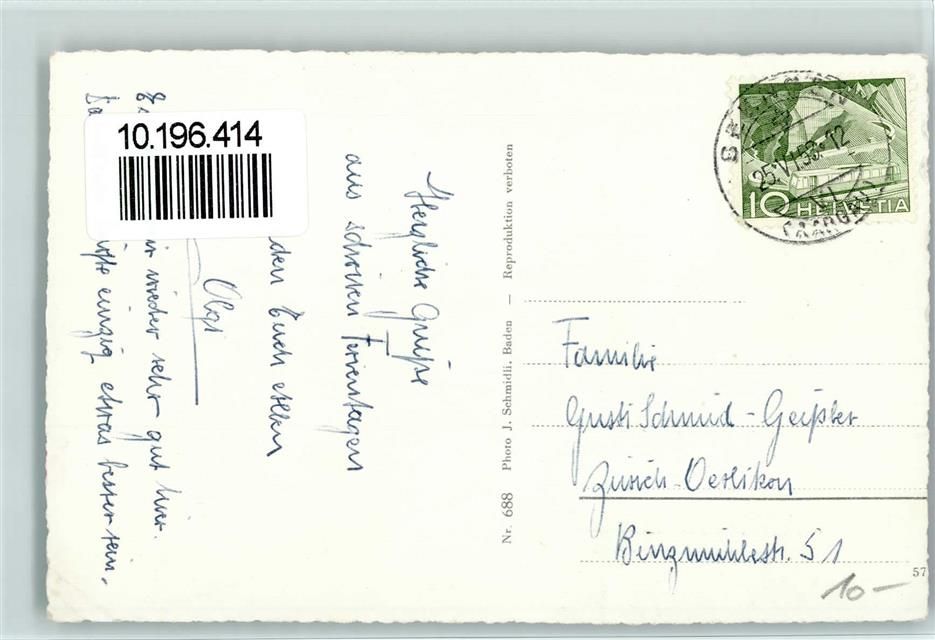 10.196.414
Herzliche Grüße
aus schönen Ferientagen
den Euch allen
Olgi
wieder sehr gut hier.
einzig etwas besser sein.
Nr. 688 Photo J. Schmidli, Baden — Reproduktion verboten
25.VI.53.-12
(AARGAU)
10 HELVETIA
Familie
Gusti Schmid-Geißler
Zürich-Oerlikon
Binzmühlestr. 51
57
10-